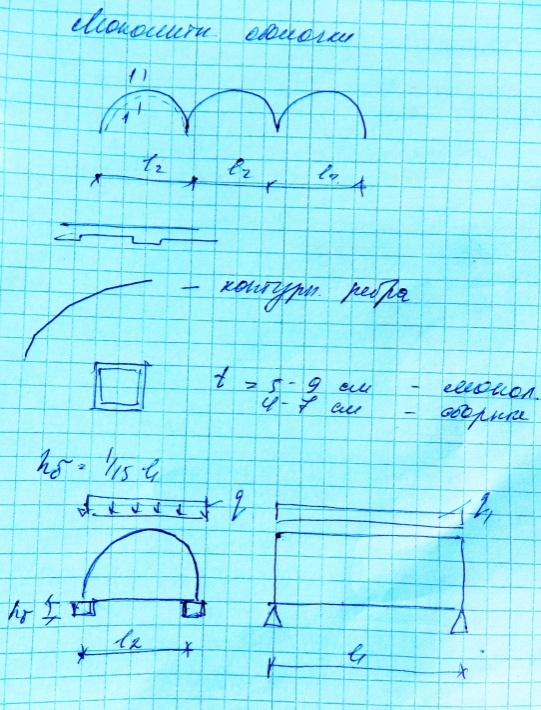 Монолитн. оболочки
1 1
1 1
l2 l2 l2
– контурн. ребра
t = 5-9 см – монол.
4-7 см – сборные
hδ = 1/15 l1
q q1
hδ
l2 l1